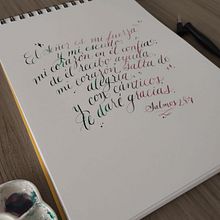 El Señor es mi fuerza
y mi escudo
mi corazón en él confía;
de él recibo ayuda
mi corazón salta de
alegría
y con cánticos
le daré gracias.
Salmos 28:7